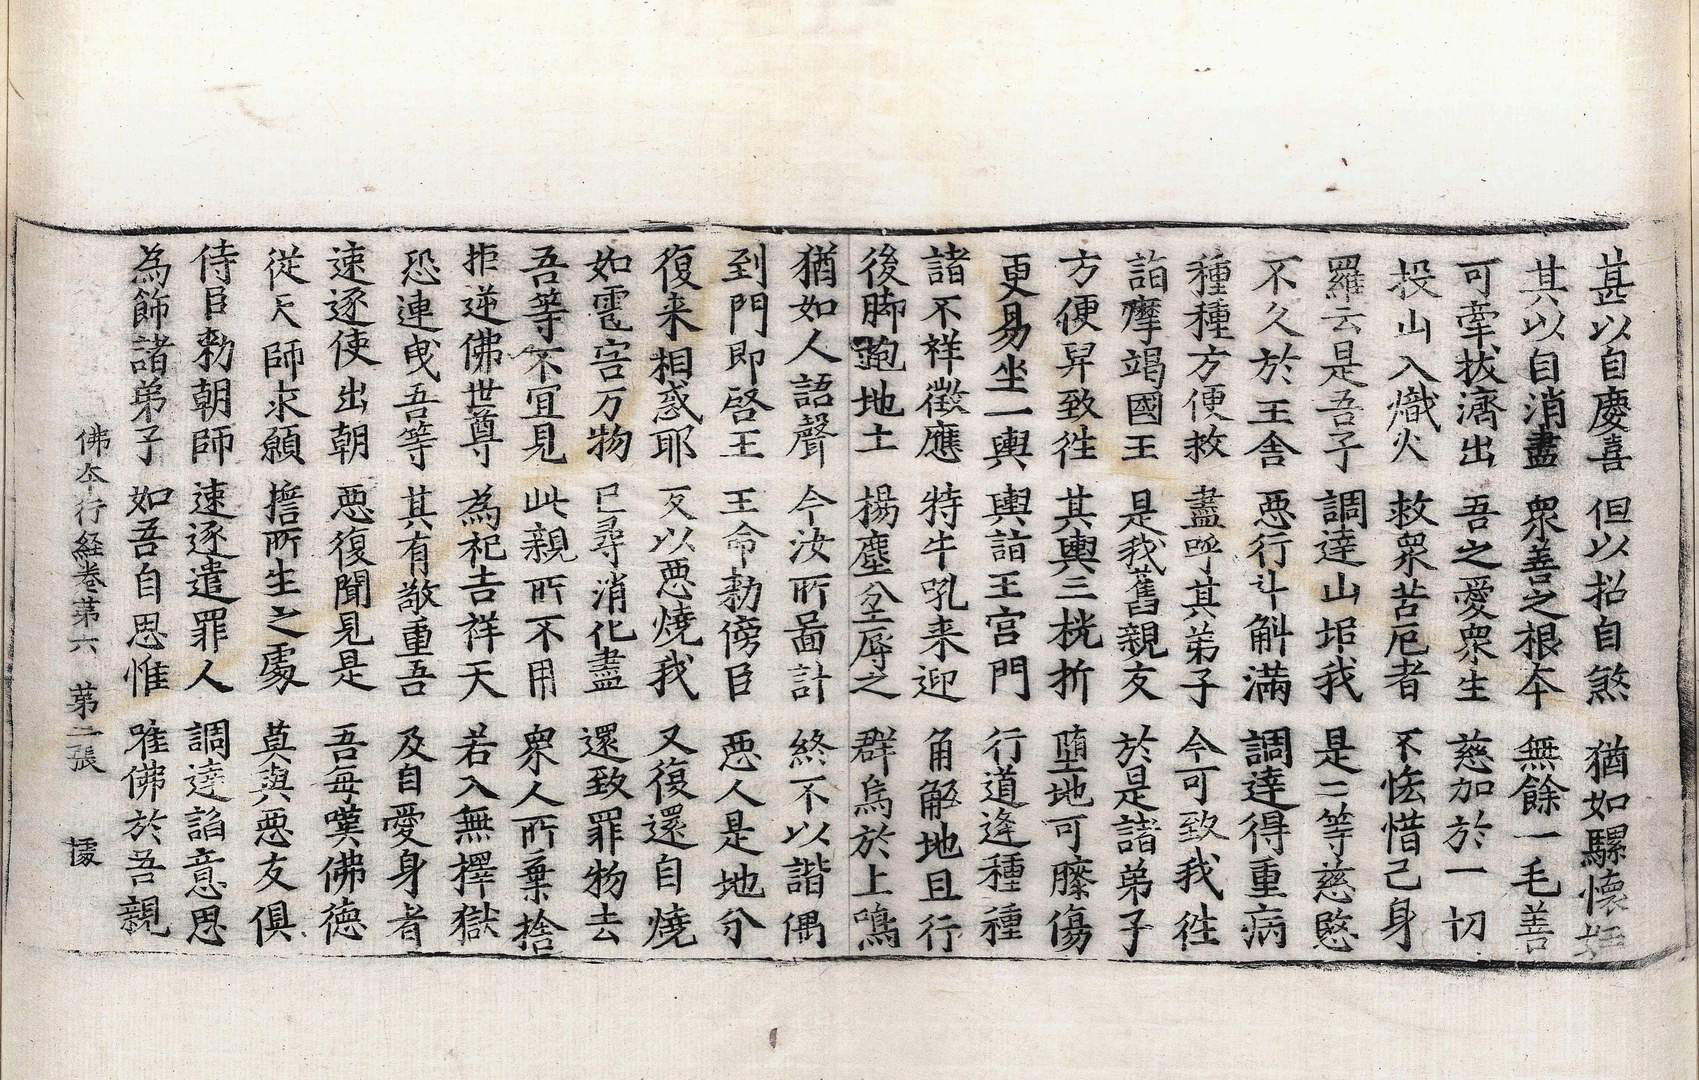 甚以自慶喜 但以招自煞 猶如騾懷妊
其以自消盡 衆善之根本 無餘一毛善
可牽拔濟出 吾之愛衆生 慈加於一切
投山入熾火 救衆苦厄者 不悋惜己身
羅云是吾子 調達山㘽我 是二等慈愍
不久於王舍 惡行斗斛滿 調達得重病
種種方便救 盡呼其弟子 今可致我往
詣摩竭國王 是我舊親友 於是諸弟子
方便舁致往 其輿三桄折 墮地可䐴傷
更易坐一輿 輿詣王宮門 行道逢種種
諸不祥徵應 特牛吼来迎 角觧地且行
後脚跑地土 揚塵坌辱之 群烏於上鳴
猶如人語聲 今汝所啚計 終不以諧偶
到門即啓王 王命勑傍臣 惡人是地分
復来相惑耶 反以惡燒我 又復還自燒
如雹害万物 已尋消化盡 還致罪物去
吾等不宜見 此親所不用 衆人所棄捨
拒逆佛世尊 為祀吉祥天 若入無擇獄
恐連曵吾等 其有敬重吾 及自愛身者
速逐使出朝 惡復聞見是 吾每嘆佛德
從天師求願 擔所生之處 莫與惡友俱
侍臣勑朝師 速逐遣罪人 調達諂意思
為飾諸弟子 如吾自思惟 唯佛於吾親
佛本行経卷第六 第二張 㯫